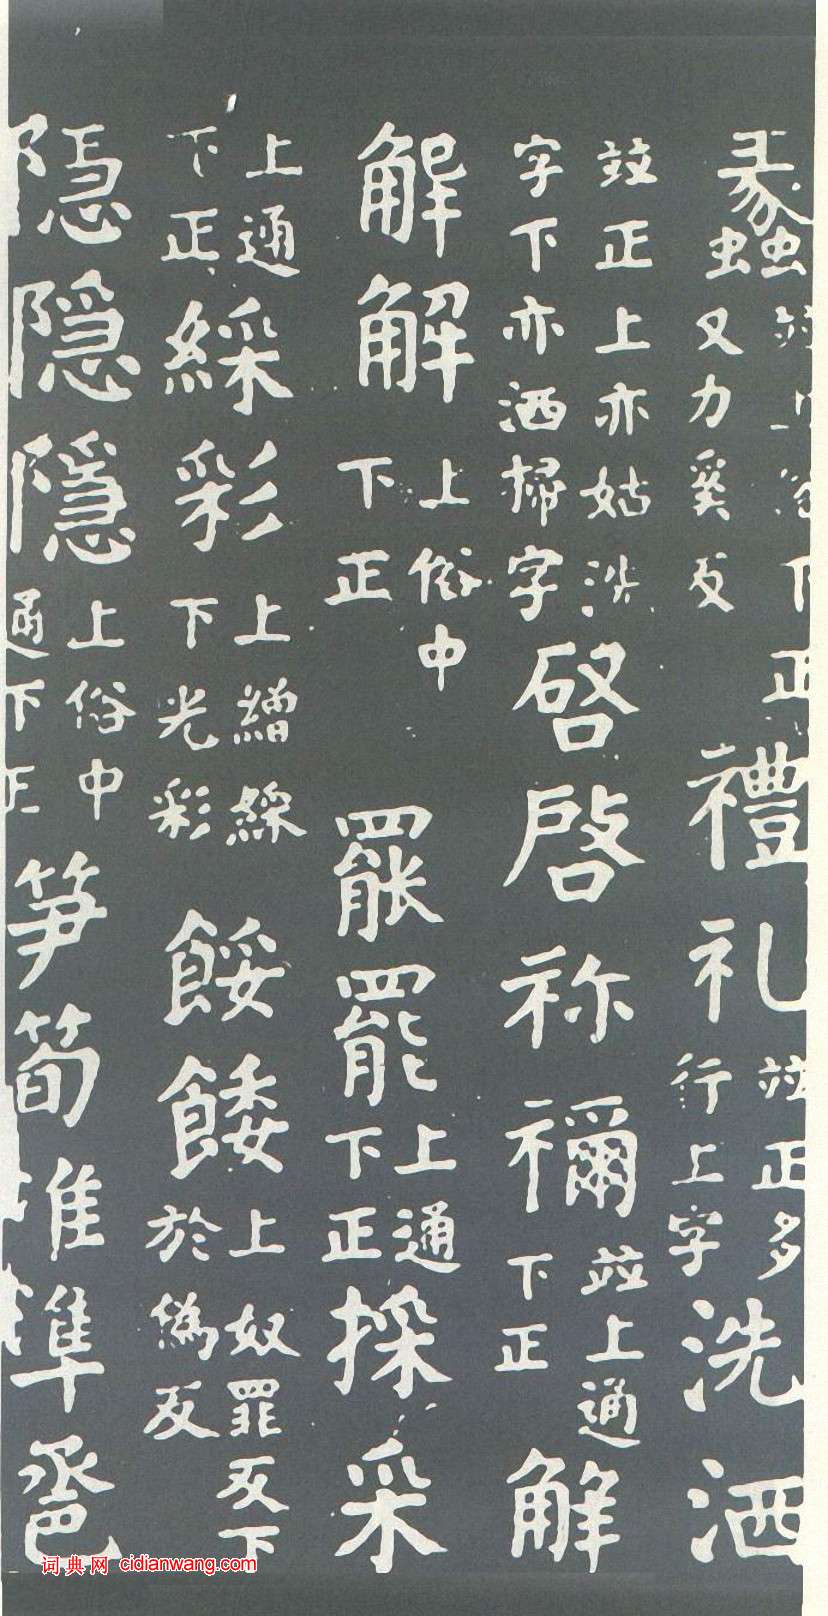 蠡並上俗下正又力奚反禮礼並正多行上字洗洒
並正上亦姑洗字下亦洒掃字啓啓祢禰並上通下正解
解解上俗中下正罷罷上通下正採采
上通下正綵彩上繒綵下光彩餒餧上奴罪反下於偽反
隱隱隱上俗中通下正笋筍准準
词典网 cidianwang.com